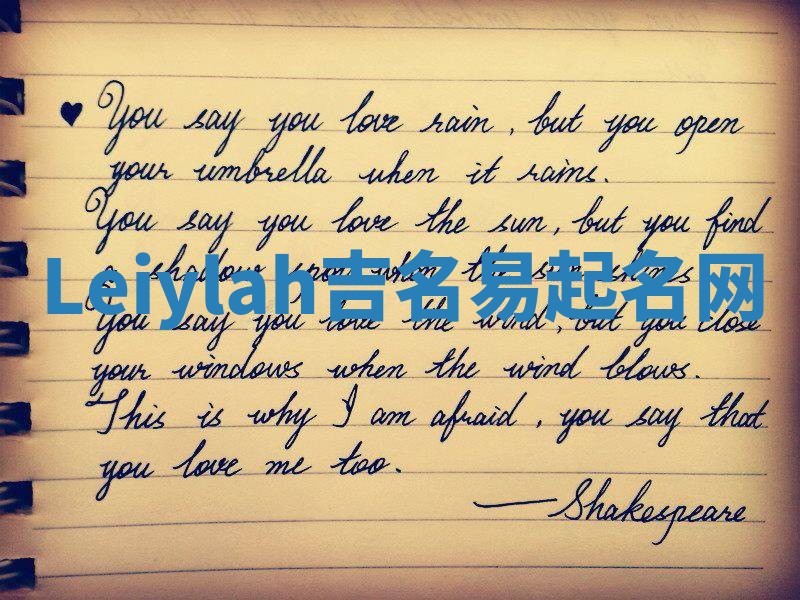 ♥ You say you love rain, but you open
your umbrella when it rains.
You say you love the sun, but you find
a shadow spot when the sun shines
Leiylah吉名易起名网
You say you love the wind, but you close
your windows when the wind blows.
This is why I am afraid, you say that
you love me too.
—Shakespeare